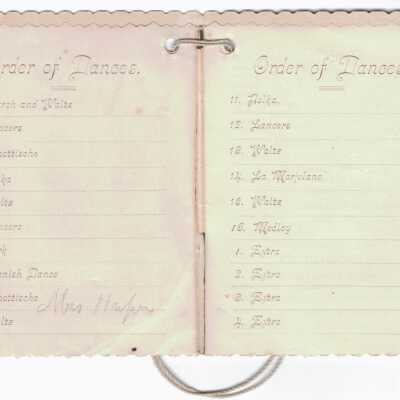 rder of Dances.
rch and Waltz
ncers
hottische
ka
ltz
ncers
rk
anish Dance
hottische Mrs
ltz
Order of Dances
11. Polka.
12. Lancers
13. Waltz
14. La Marjolane
15. Waltz
16. Medley
1. Extra
2. Extra
3. Extra
4. Extra